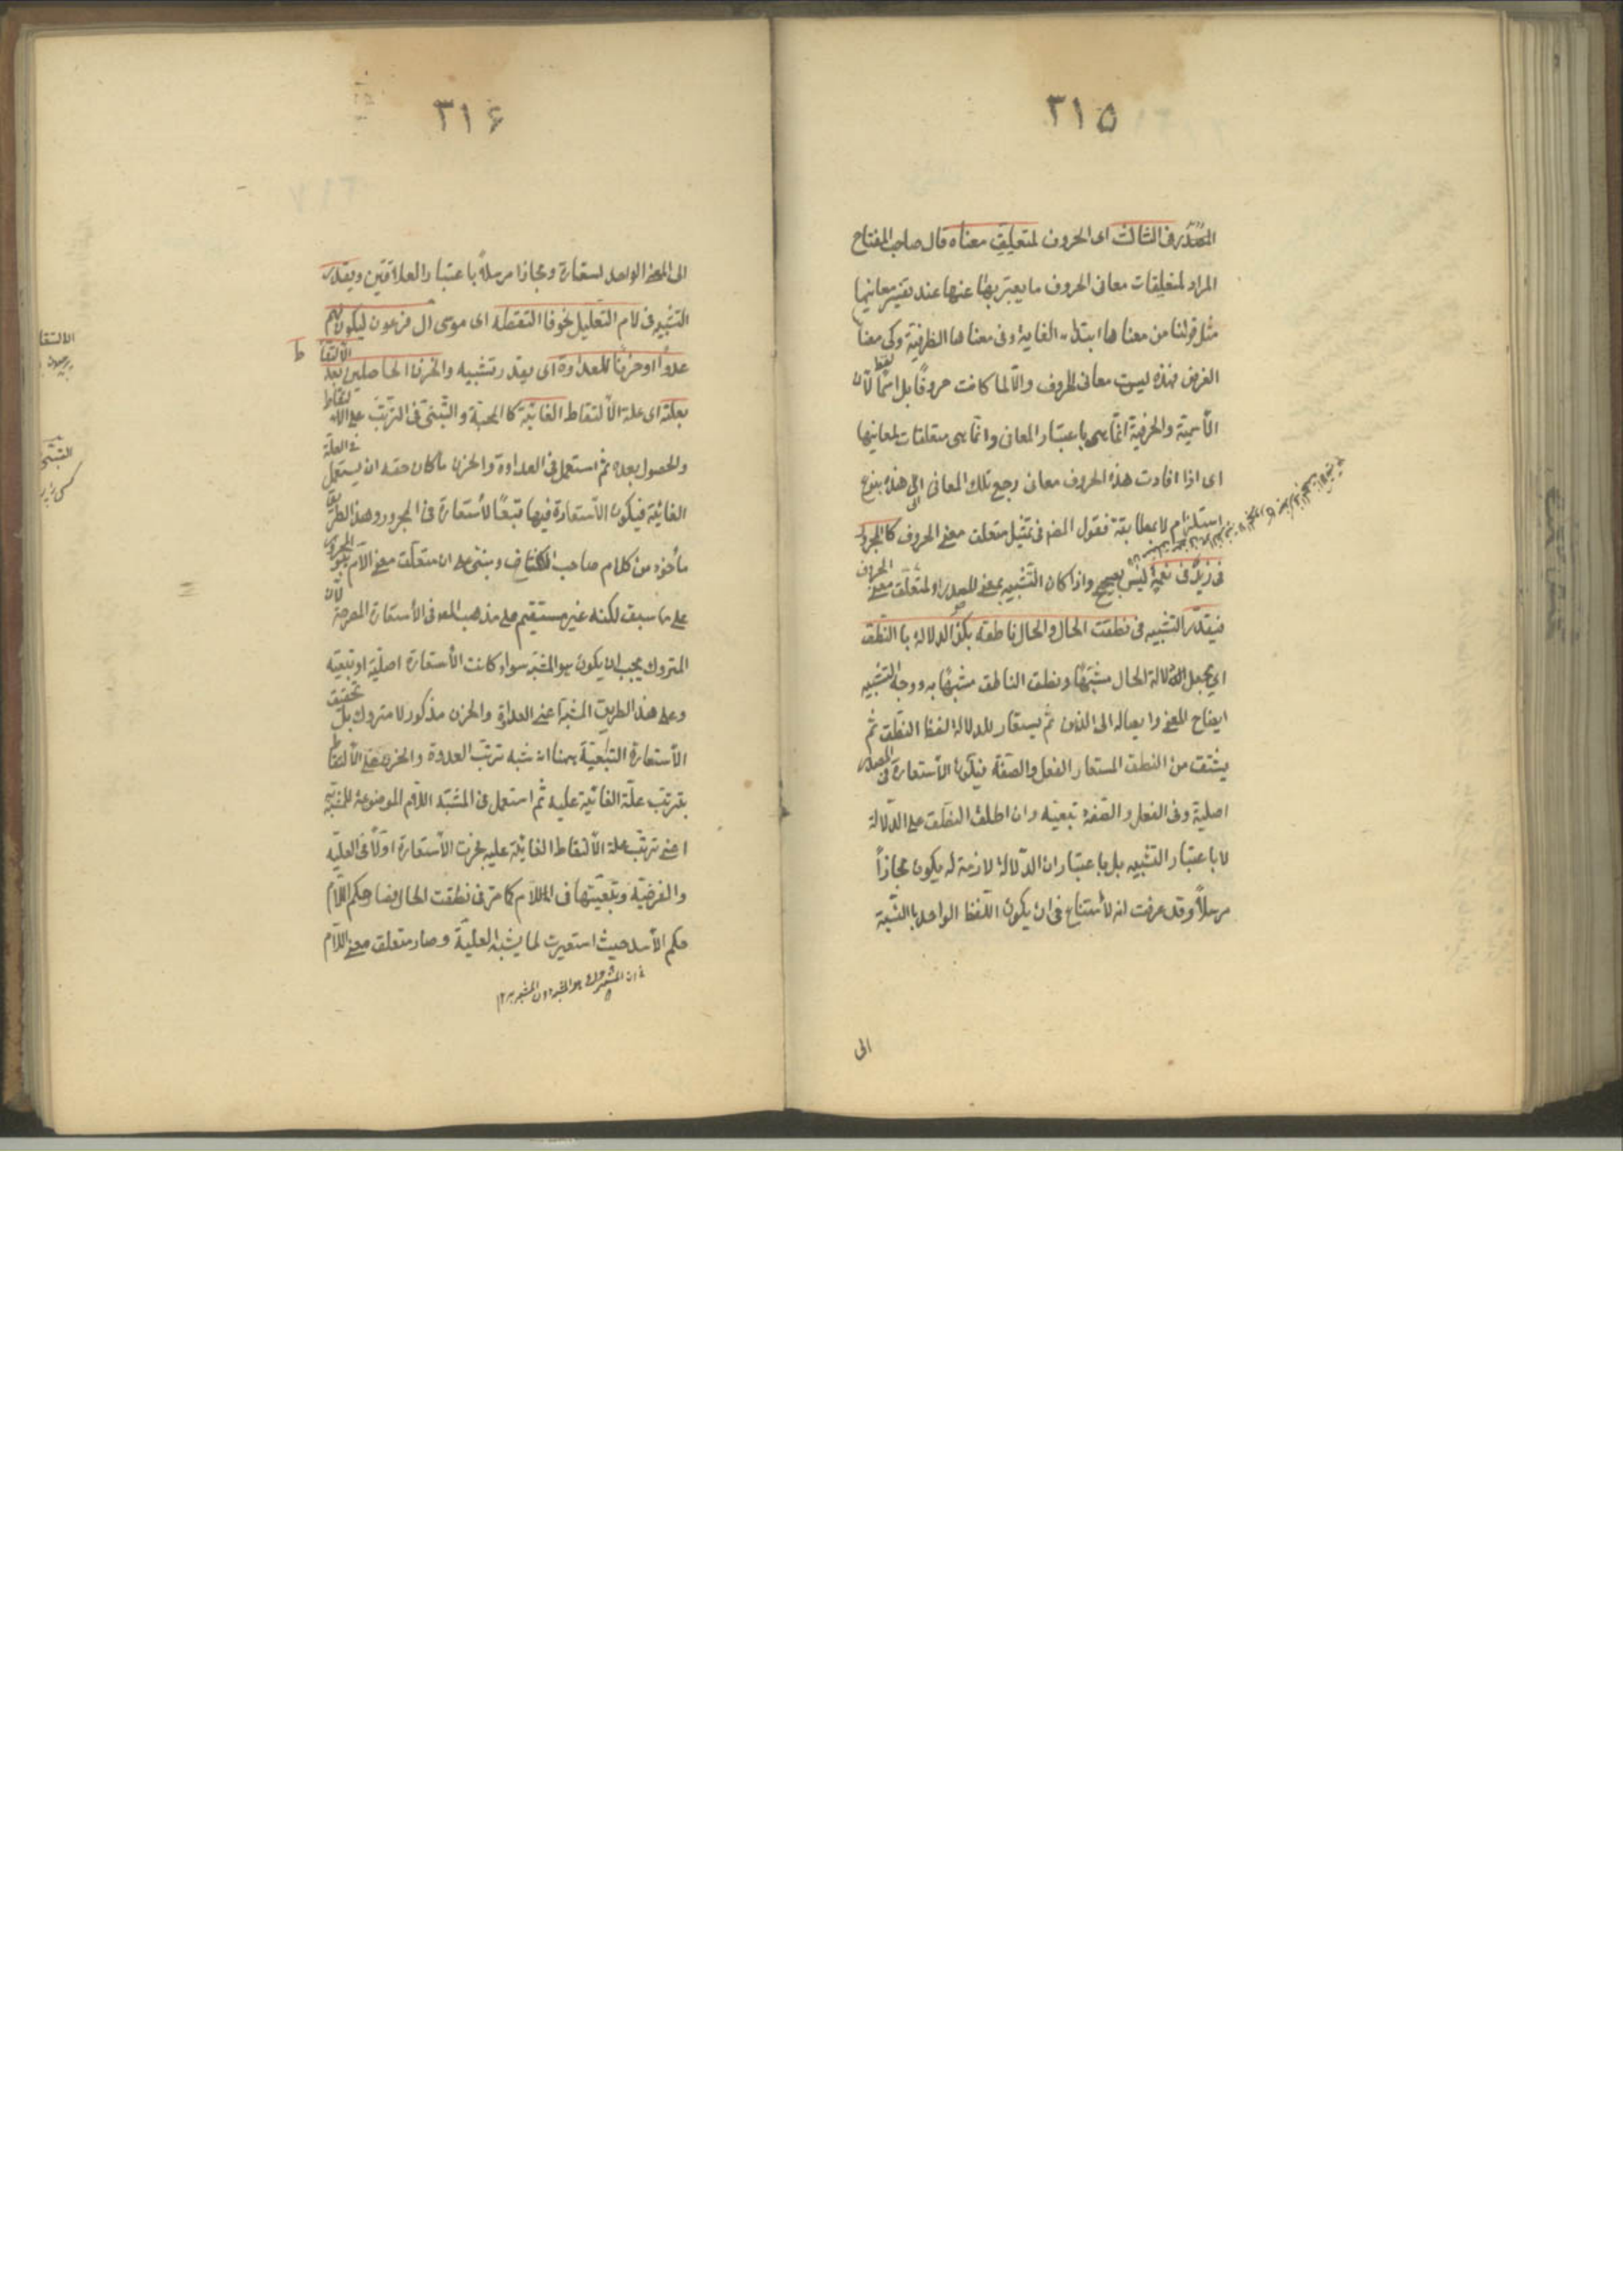 ٣١٥
المصدر وفى الثالث اى الحروف لمتعلق معناه قال صاحب المفتاح
المراد بمتعلقات معانى الحروف ما يعبر بها عنها عند تفسير معانيها
مثل قولنا من معناها ابتداء الغاية وفى معناها الظرفية وكى معناها
الغرض فهذه ليست معانى الحروف والا لما كانت حروفًا بل اسمًا لان
الأسمية والحرفية انما هى باعتبار المعانى وانما هى متعلقات لمعانيها
اى اذا افادت هذه الحروف معانى رجع تلك المعانى الى هذه بنوع
استلزام لا بمطابقة فقول المصنف فى تمثيل متعلق معنى الحروف كالمجرور
فى زيد فى نعمة ليس بصحيح واذا كان التشبيه بمعنى المصدر او لمتعلق معنى الحروف
فيقدر التشبيه فى نطقت الحال والحال ناطقة بكذا للدلالة بالنطق
اى يجعل دلالة الحال مشبهًا ونطق الناطق مشبهًا به ووجه التشبيه
ايضاح المعنى وايصاله الى الذهن ثم يستعار للدلالة لفظ النطق ثم
يشتق من النطق المستعار الفعل والصفة فيكون الاستعارة فى المصدر
اصلية وفى الفعل والصفة تبعية وان اطلق النطق على الدلالة
لا باعتبار التشبيه بل باعتبار ان الدلالة لازمة له يكون مجازاً
مرسلاً وقد عرفت انه لا امتناع فى ان يكون اللفظ الواحد بالنسبة
الى
٣١۶
الى المعنى الواحد استعارة ومجازا مرسلاً باعتبار العلاقتين ويقدر
التشبيه فى لام التعليل نحو فالتقطه اى موسى ال فرعون ليكون لهم
عدوًا وحزنًا للعداوة اى يقدر تشبيه والحزن الحاصلين بعد الالتقاط
بعلته اى علة الالتقاط الغائية كالمحبة والتبنى فى الترتب على الالتقاط
والحصول بعده ثم استعمل فى العداوة والحزن ما كان حقه ان يستعمل فى العلة
الغائية فيكون الاستعارة فيها تبعًا لأستعارة فى المجرور وهذا الطريق
مأخوذ من كلام صاحب الكشاف ومبنى على ان متعلق معنى اللام هو المجرور
على ما سبق لكنه غير مستقيم على مذهب المصنف فى الأستعارة المصرحة لان
المتروك يجب ان يكون هو المشبه سواء كانت الأستعارة اصلية او تبعية
وعلى هذا الطريق المشبه اعنى العداوة والحزن مذكور لا متروك بل تحقيق
الأستعارة التبعية ههنا انه شبه ترتب العداوة والحزن على الالتقاط
بترتب علة الغائية عليه ثم استعمل فى المشبه اللام الموضوعة للمشبه به
اعنى ترتب علة الألتقاط الغائية عليه فجرت الأستعارة اولاً فى العلية
والغرضية وتبعيتها فى اللام كما مر فى نطقت الحال فصار حكم اللام
حكم الأسد حيث استعيرت لما يشبه العلية وصار متعلق معنى اللام